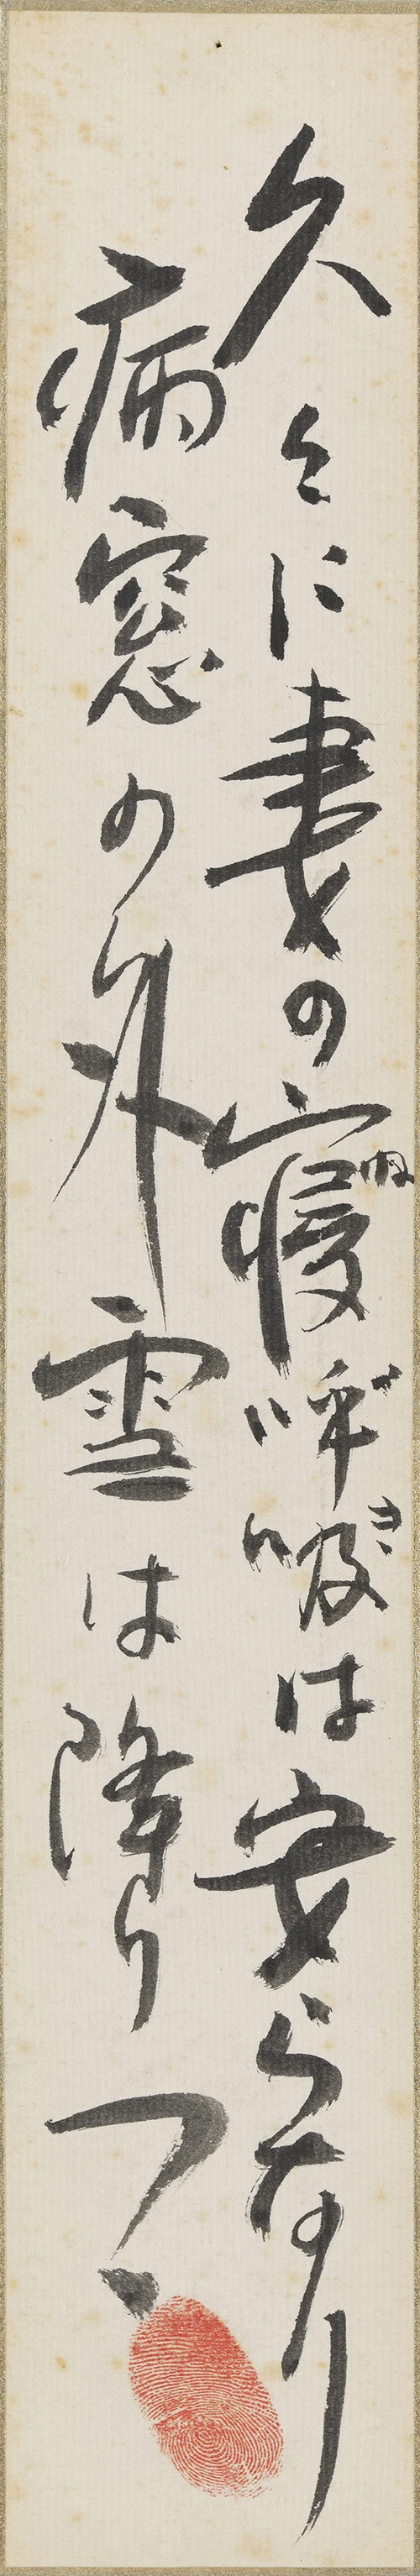 久々に妻の寝呼吸は安らなり
ねいき
病窓の外雪は降りつゝ